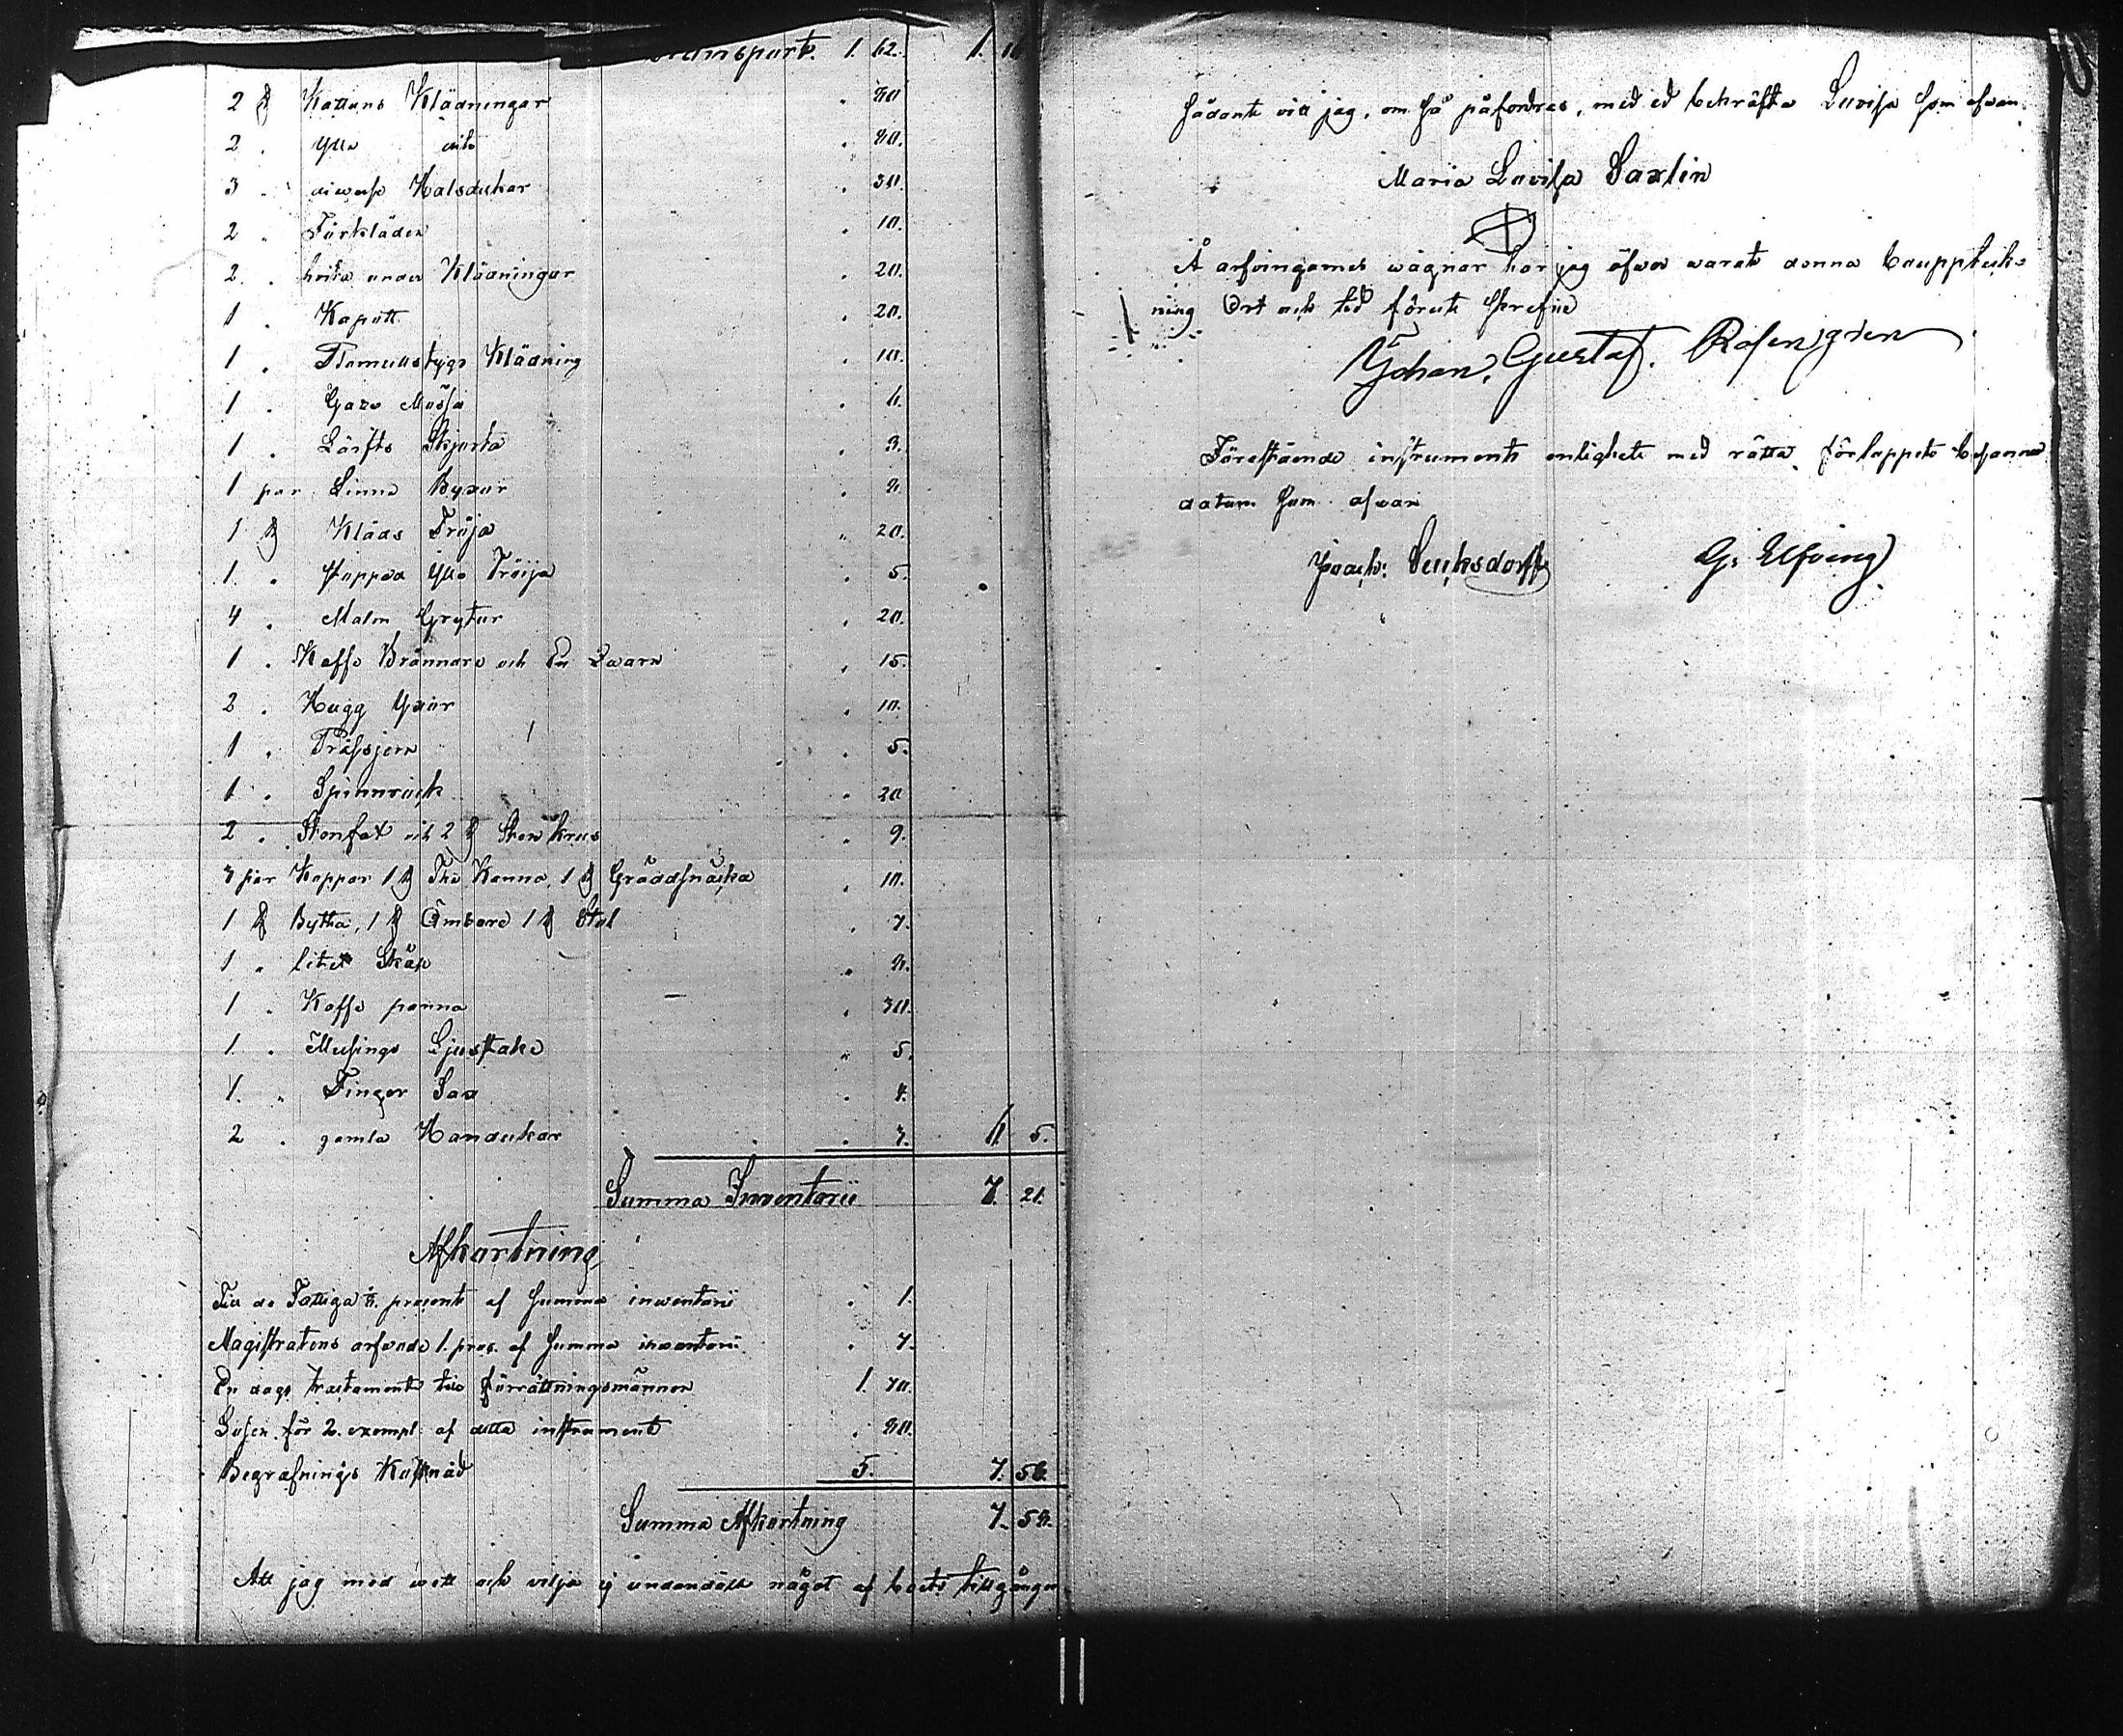 Transport. 1. 62. 1. 16
2 st Kattuns Klädningar . 80
2 . Ylle dito . 80.
3 . diverse Halsdukar . 30.
2 . Förkläden . 10.
2. . hvita under Klädningar . 20.
1 . Kapott . 20.
1 . Bomullstygs Klädning . 10.
1 . Gaze Mössa .
1 . Lärfts Skjorta . 3.
1 par Linne Byxor .
1 st Kläds Tröja . 20.
1. . stoppad Ylle Tröija . 5.
4 . Malm Grytor . 20.
1 . Kaffe Brännare och En Qwarn . 15.
2 . Hugg Yxor . 10.
1 . Prässjern . 5.
1 . Spinnrock . 20
2 . Stenfat och 2 st Sten krus . 9.
3 par Koppar 1 st The Kanna, 1 st Gräddsnäcka . 10.
1 st Bytta, 1 st Ömbare 1 st Stol . 7.
1 . litet Skåp .
1 . Kaffe panna . 30.
1. . Messings Ljusstake . 5.
1. . Finger Sax . 4.
2 . gamla Handukar . 3. 6. 5.
Summa Inventarii 7. 21.
Afkortning
Till de Fattiga procent af Summa inventarii . 1.
Magistratens arfvode 1. proc. af Summa inventarii . 7.
En dags tractamente till förrättningsmännen 1. 70.
Lösen för 2. exempl: af detta instrument . 80.
Begrafnings Kostnad 5. 7. 58.
Summa Afkortning 7. 58.
Att jag med wett och vilja ej undandölt något af boets tillgångar
sådant vill jag, om så påfordras, med ed bekräfta Lovisa som ofvan.
Maria Lovisa Saxlin
Å arfvingarnes wägnar har jag öfver varit denna bouppteck-
ning Ort och tid förut skrefne
Johan, Gustaf. Rosengren
Förestående instrument enlighet med rätta förloppet
datum som ofvan
Joach: Sucksdorff G: Elfving